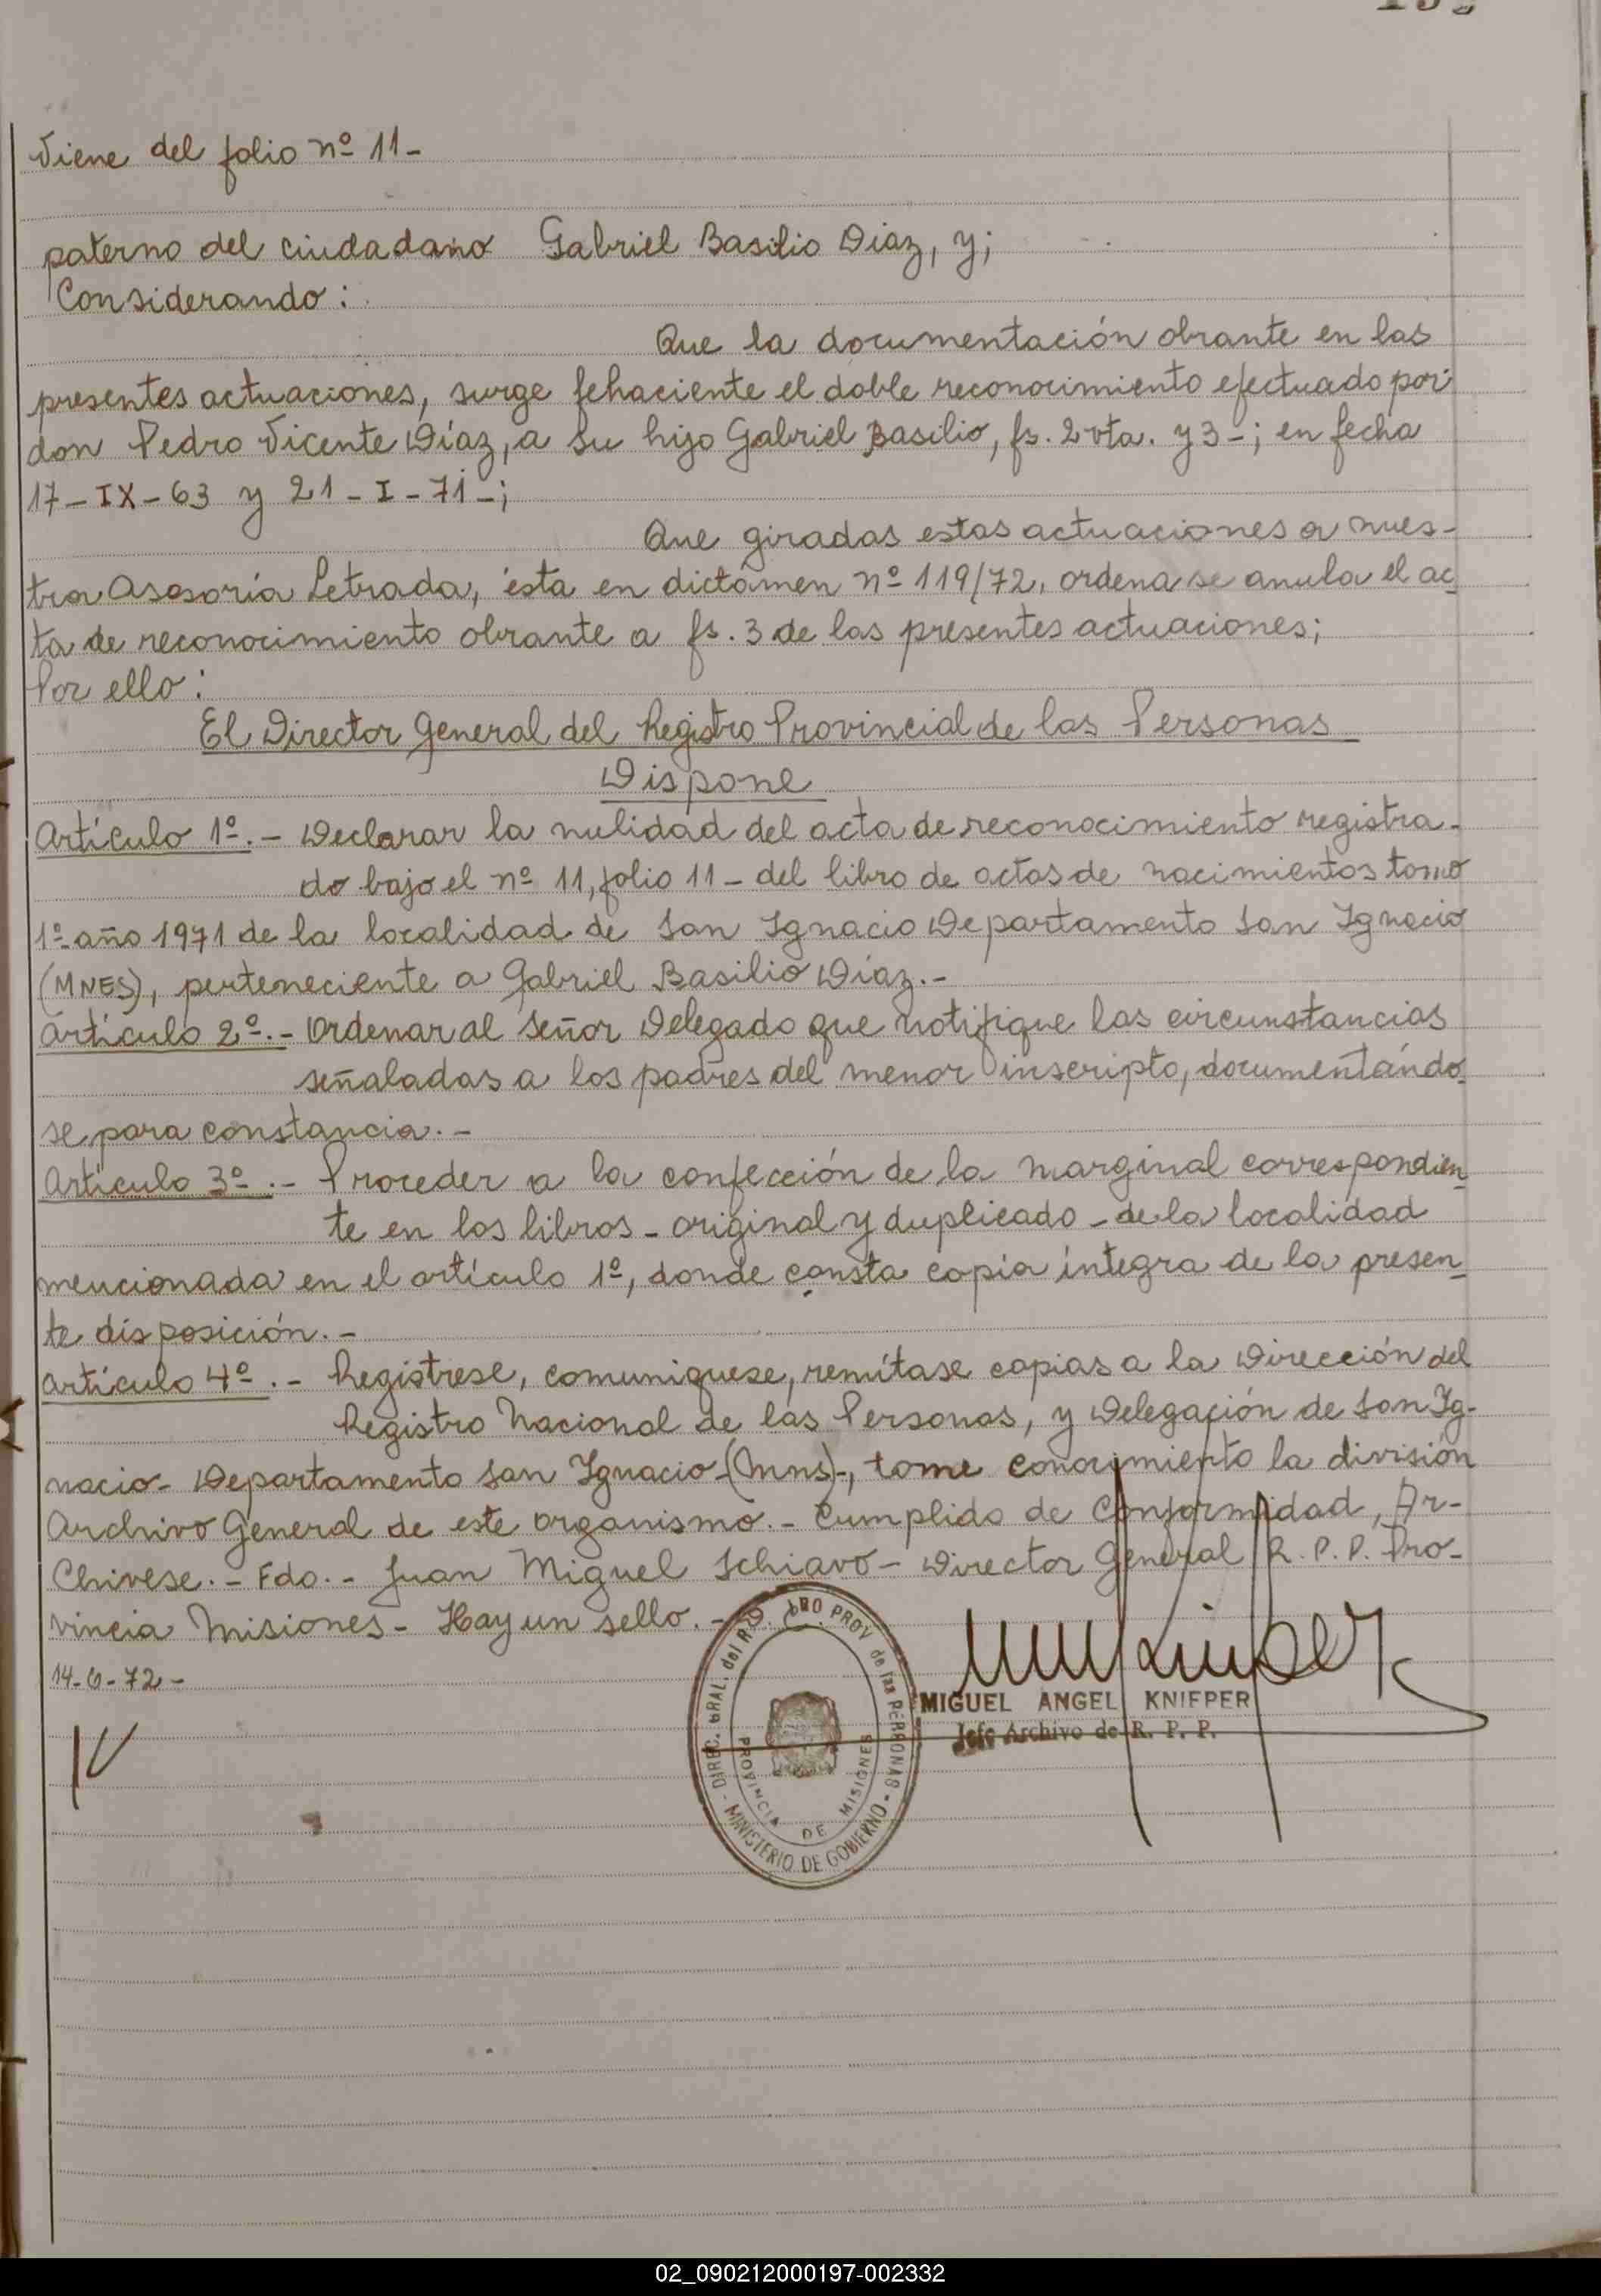 Viene del folio nº 11-
paterno del ciudadano Gabriel Basilio Diaz, y;
Considerando:
Que la documentación obrante en las
presentes actuaciones, surge fehaciente el doble reconocimiento efectuado por
don Pedro Vicente Díaz, a su hijo Gabriel Basilio, fs. 2 vta. y 3-; en fecha
17-IX-63 y 21-I-71-;
Que giradas estas actuaciones a nues-
tra Asesoría Letrada, ésta en dictámen nº 119/72, ordena se anula el ac
ta de reconocimiento obrante a fs. 3 de las presentes actuaciones;
Por ello:
El Director General del Registro Provincial de las Personas
Dispone
Artículo 1º.- Declarar la nulidad del acta de reconocimiento registra-
do bajo el nº 11, folio 11- del libro de actas de nacimientos tomo
1º año 1971 de la localidad de San Ignacio Departamento San Ignacio
(MNES), perteneciente a Gabriel Basilio Díaz.-
Artículo 2º.- Ordenar al señor Delegado que notifique las circunstancias
señaladas a los padres del menor inscripto, documentándo
se para constancia.-
Artículo 3º.- Proceder a la confección de la marginal correspondien
te en los libros - original y duplicado - de la localidad
mencionada en el artículo 1º, donde consta copia íntegra de la presen
te disposición.-
Artículo 4º.- Registrese, comuniquese, remítase copias a la Dirección del
Registro Nacional de las Personas, y Delegación de San Ig-
nacio- Departamento San Ignacio-(Mns)-, tome conocimiento la división
Archivo General de este organismo.- Cumplido de Conformidad, Ar-
Chivese.- Fdo.- Juan Miguel Schiavo- Director General R.P.P. Pro-
vincia Misiones- Hay un sello.-
14-6-72-
MIGUEL ANGEL KNIEPER
Jefe Archivo de R. P. P.
DIREC. GRAL. del REGISTRO PROV de las PERSONAS - MINISTERIO DE GOBIERNO -
PROVINCIA DE MISIONES
02_090212000197-002332